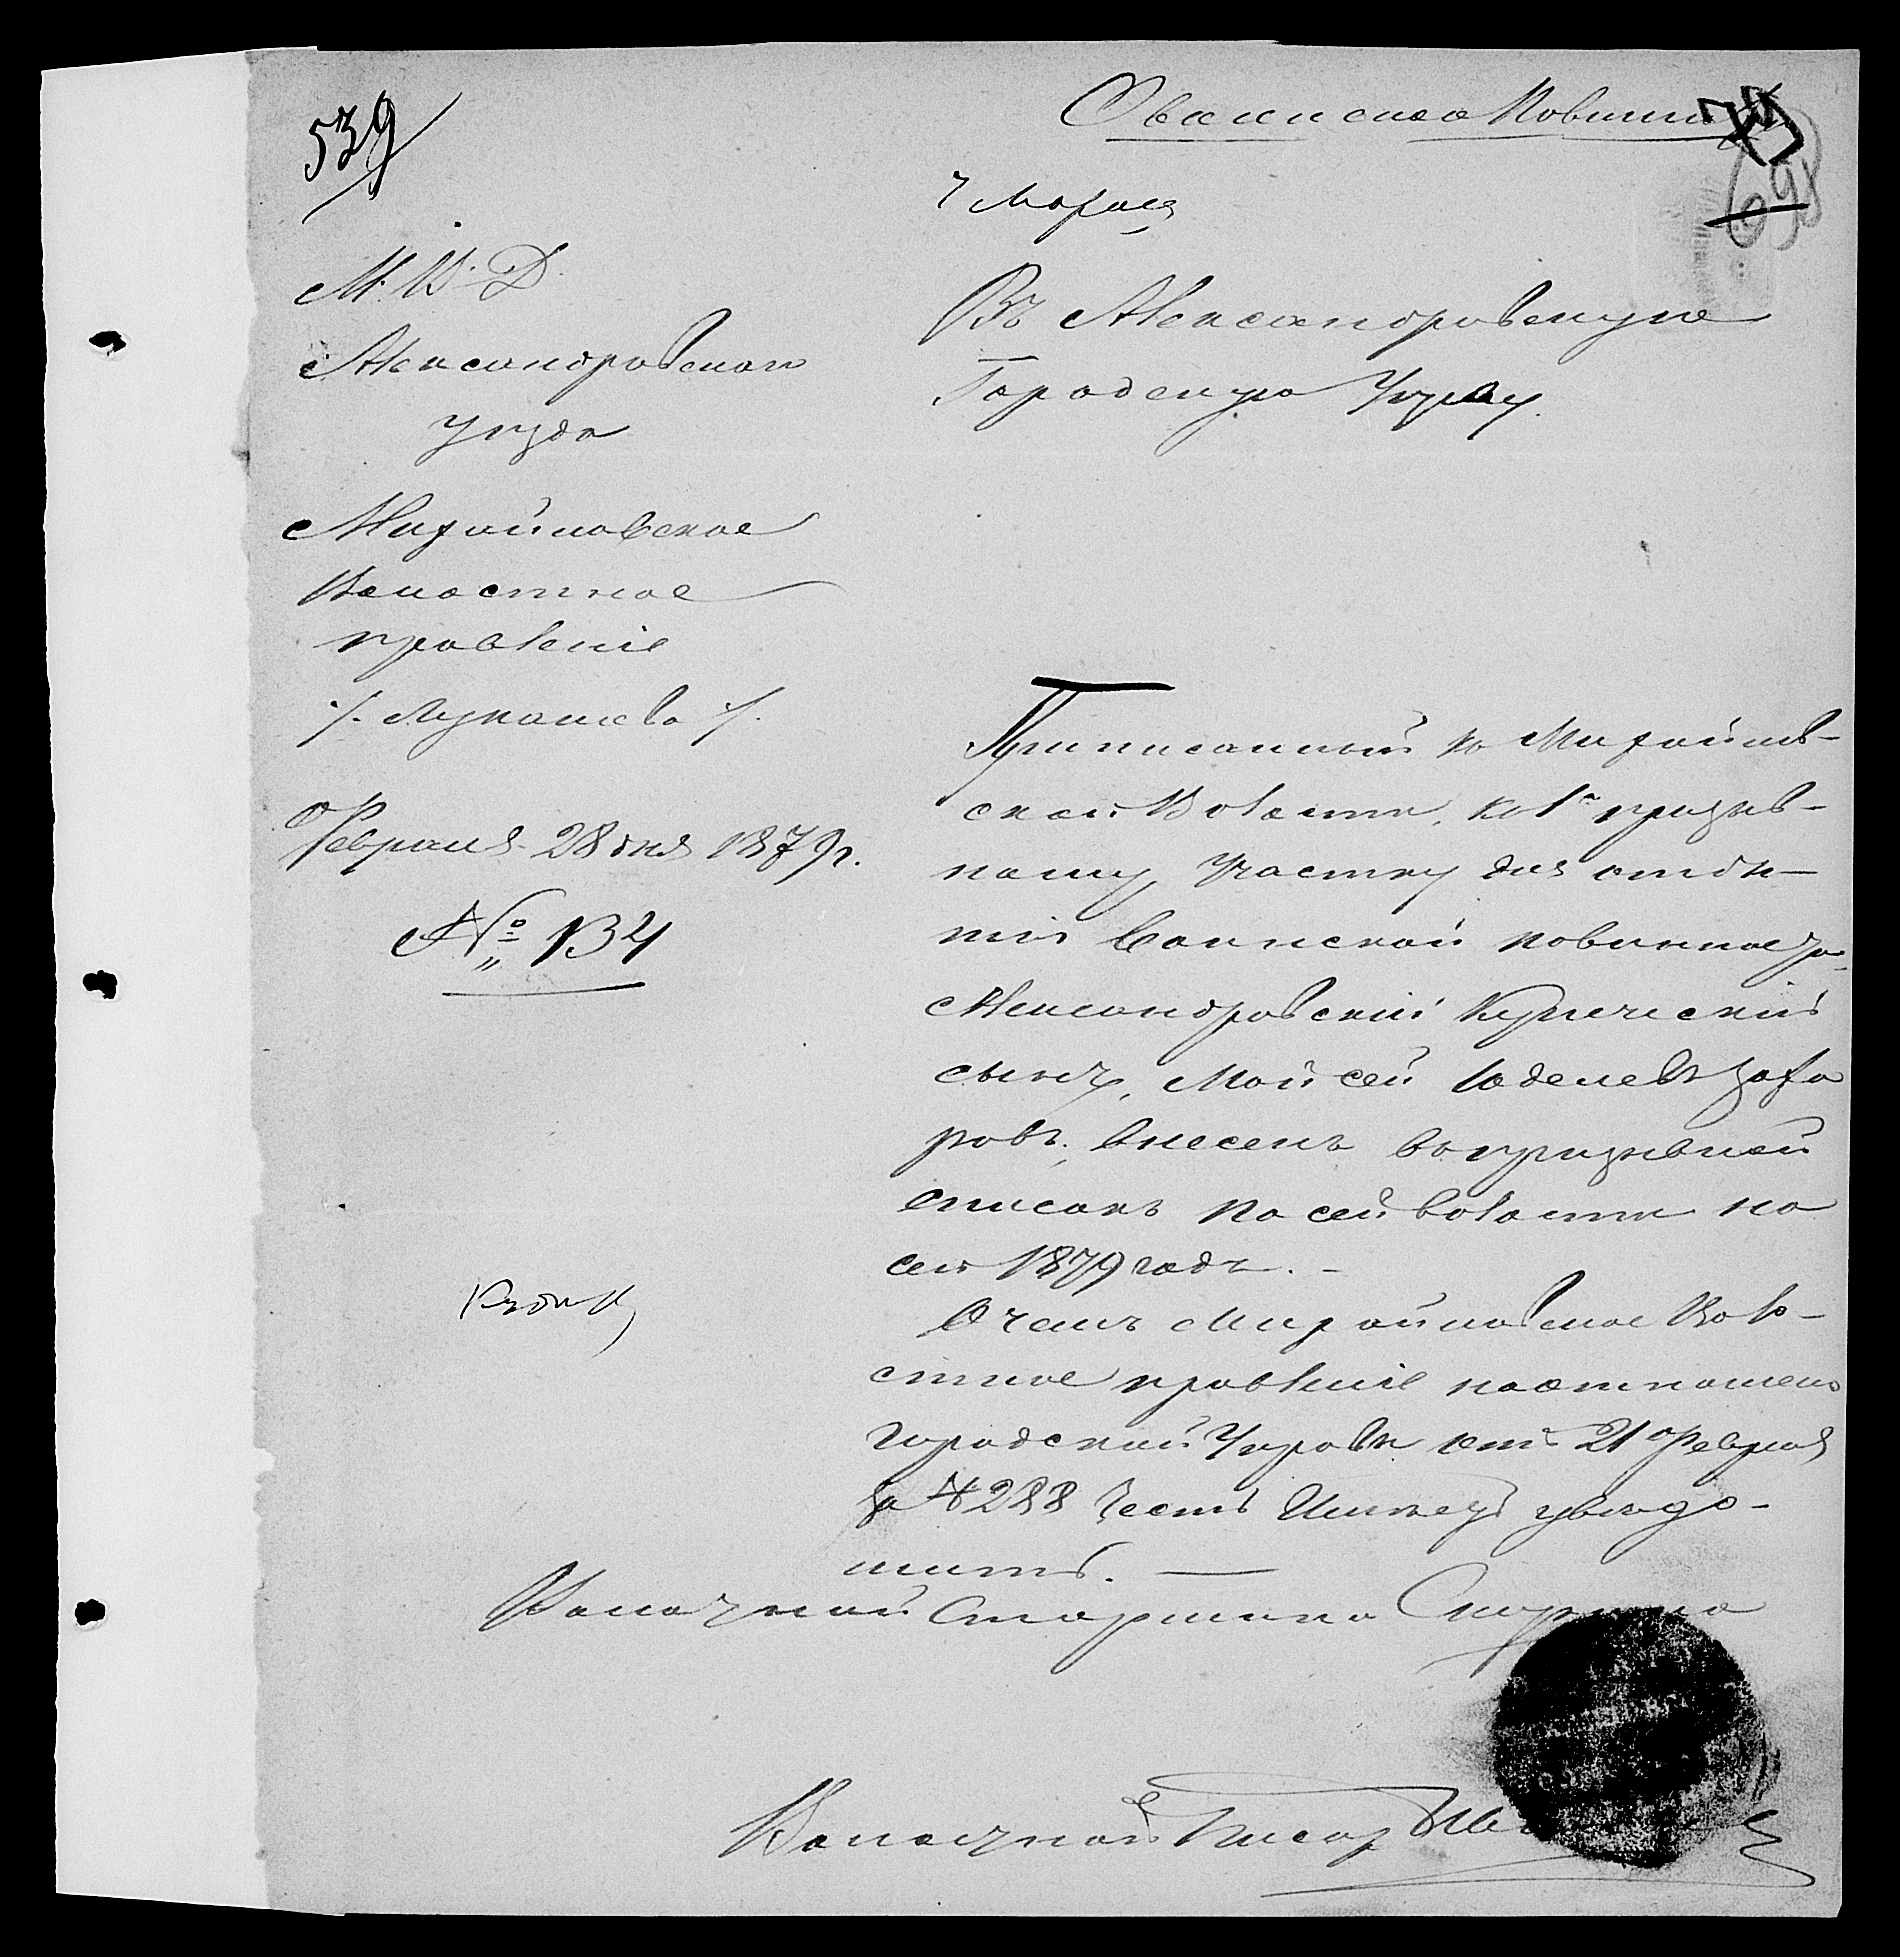 539
О воинской повин
7 Марта
698
М. В. Д.
Александровскаго
уезда
Михайловское
Волостное
правленіе
./. Лукашево ./.
Февраля 28 дня 1879 г.
№ 134
Въ Александровскую
Городскую Управу.
Приписанный къ Михайлов-
ской Волости, къ 1му призыв-
ному Участку для отбы-
тія воинской повинности
Александровскій Купеческій
сынъ, Мойсей Юделевъ Заха
ровъ, внесенъ въ призывной
списокъ по сей волости на
сей 1879 годъ. -
О чемъ Михайловское Воло-
стное правленіе на отношение
Городской Управы отъ 21 Февраля
за № 288 честь имеетъ уведо-
мить. —
Волостной Старшина
Волостной Писарь